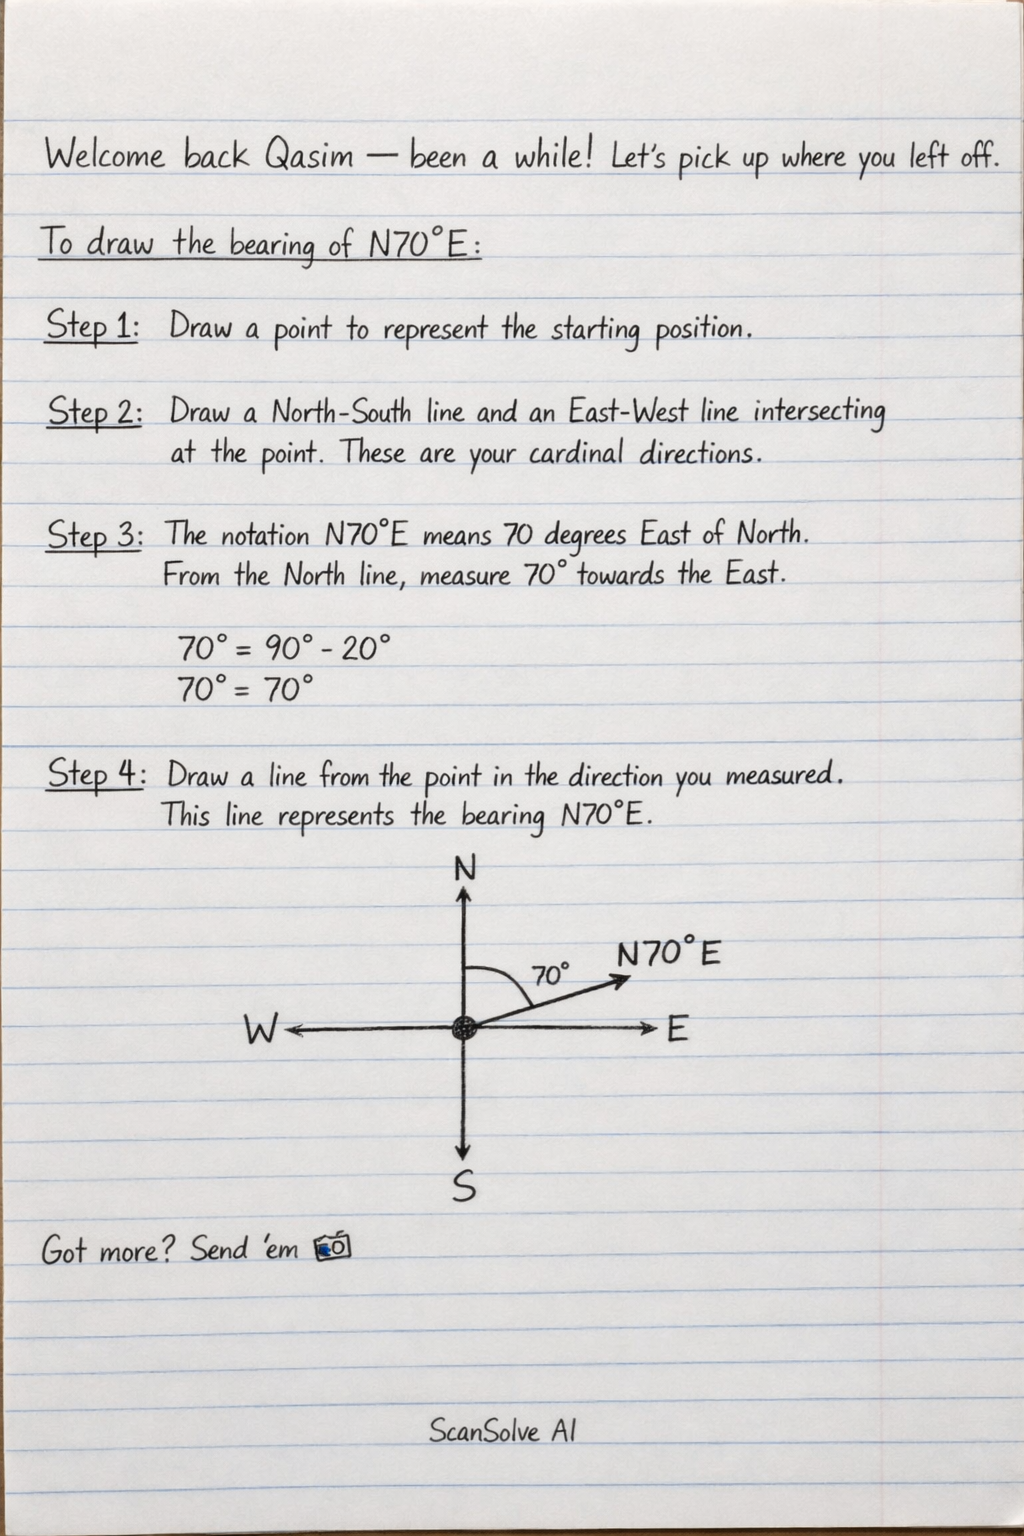 Welcome back Qasim — been a while! Let's pick up where you left off.
To draw the bearing of N70°E:
Step 1: Draw a point to represent the starting position.
Step 2: Draw a North-South line and an East-West line intersecting
at the point. These are your cardinal directions.
Step 3: The notation N70°E means 70 degrees East of North.
From the North line, measure 70° towards the East.
70° = 90° - 20°
70° = 70°
Step 4: Draw a line from the point in the direction you measured.
This line represents the bearing N70°E.
N
N70°E
70°
W
E
S
Got more? Send 'em 📷
ScanSolve AI